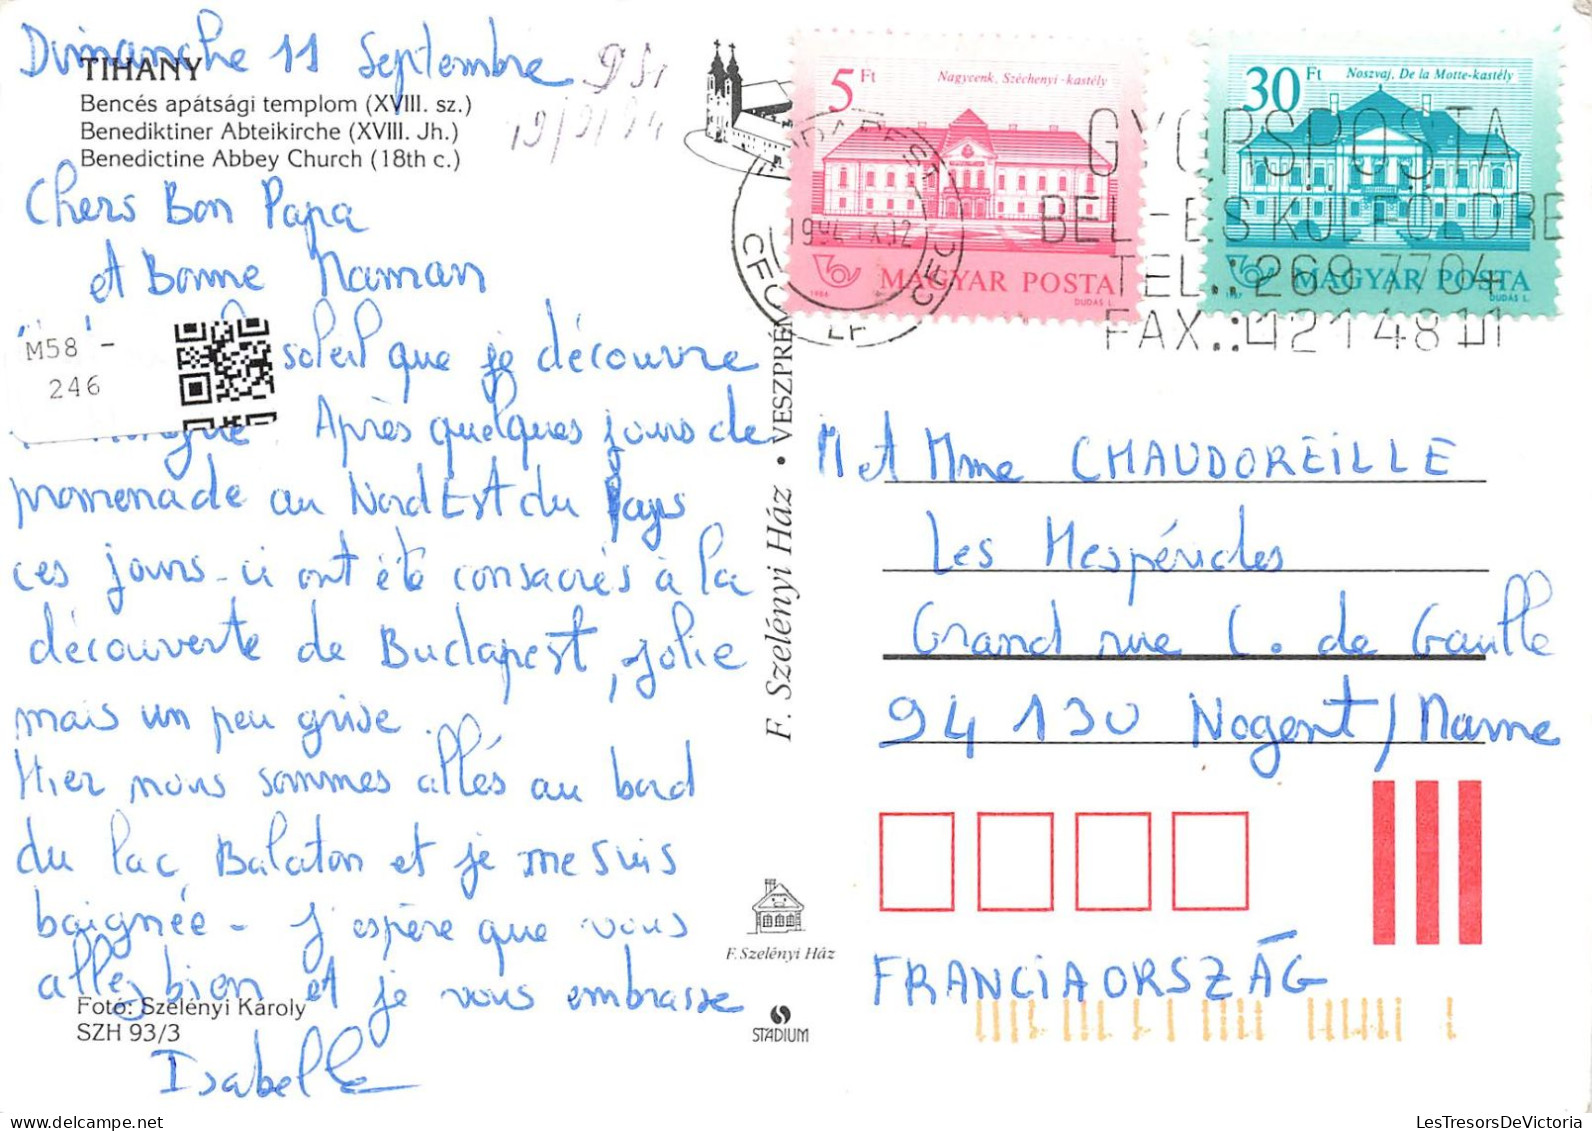 Dimanche 11 Septembre
19/9/94
TIHANY
Bencés apátsági templom (XVIII. sz.)
Benediktiner Abteikirche (XVIII. Jh.)
Benedictine Abbey Church (18th c.)
Chers Bon Papa
et Bonne Maman
soleil que je découvre
Après quelques jours de
promenade au Nord Est du Pays
ces jours-ci ont été consacrés à la
découverte de Budapest, jolie
mais un peu grise.
Hier nous sommes allés au bord
du lac Balaton et je me suis
baignée - J'espère que vous
allez bien et je vous embrasse
Isabelle
Fotó: Szelényi Károly
SZH 93/3
M58 -
246
F. Szelényi Ház • VESZPRÉM
F. Szelényi Ház
STÁDIUM
5 Ft
Nagycenk, Széchenyi-kastély
MAGYAR POSTA
1986
DUDÁS L.
30 Ft
Noszvaj, De la Motte-kastély
MAGYAR POSTA
DUDÁS L.
1994 IX 12
GYORSPOSTA
BEL- ES KÜLFÖLDRE
TEL.: 269 7704
FAX.: 1214811
M et Mme CHAUDOREILLE
Les Hespérides
Grand rue C. de Gaulle
94 130 Nogent / Marne
FRANCIAORSZÁG
LesTresorsDeVictoria.com